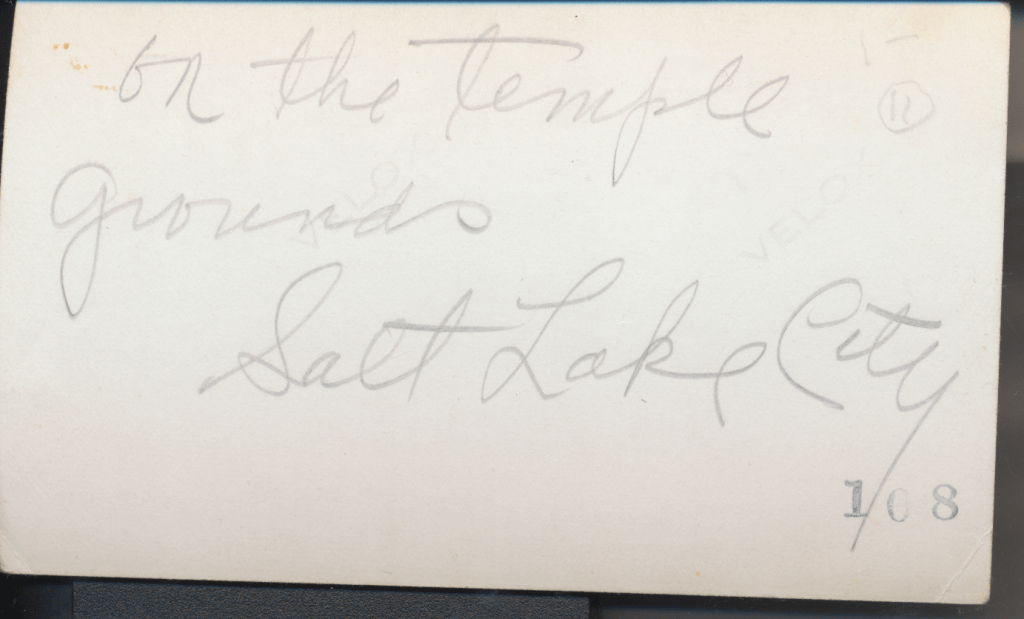 on the Temple
R
grounds
VELOX
Salt Lake City
108